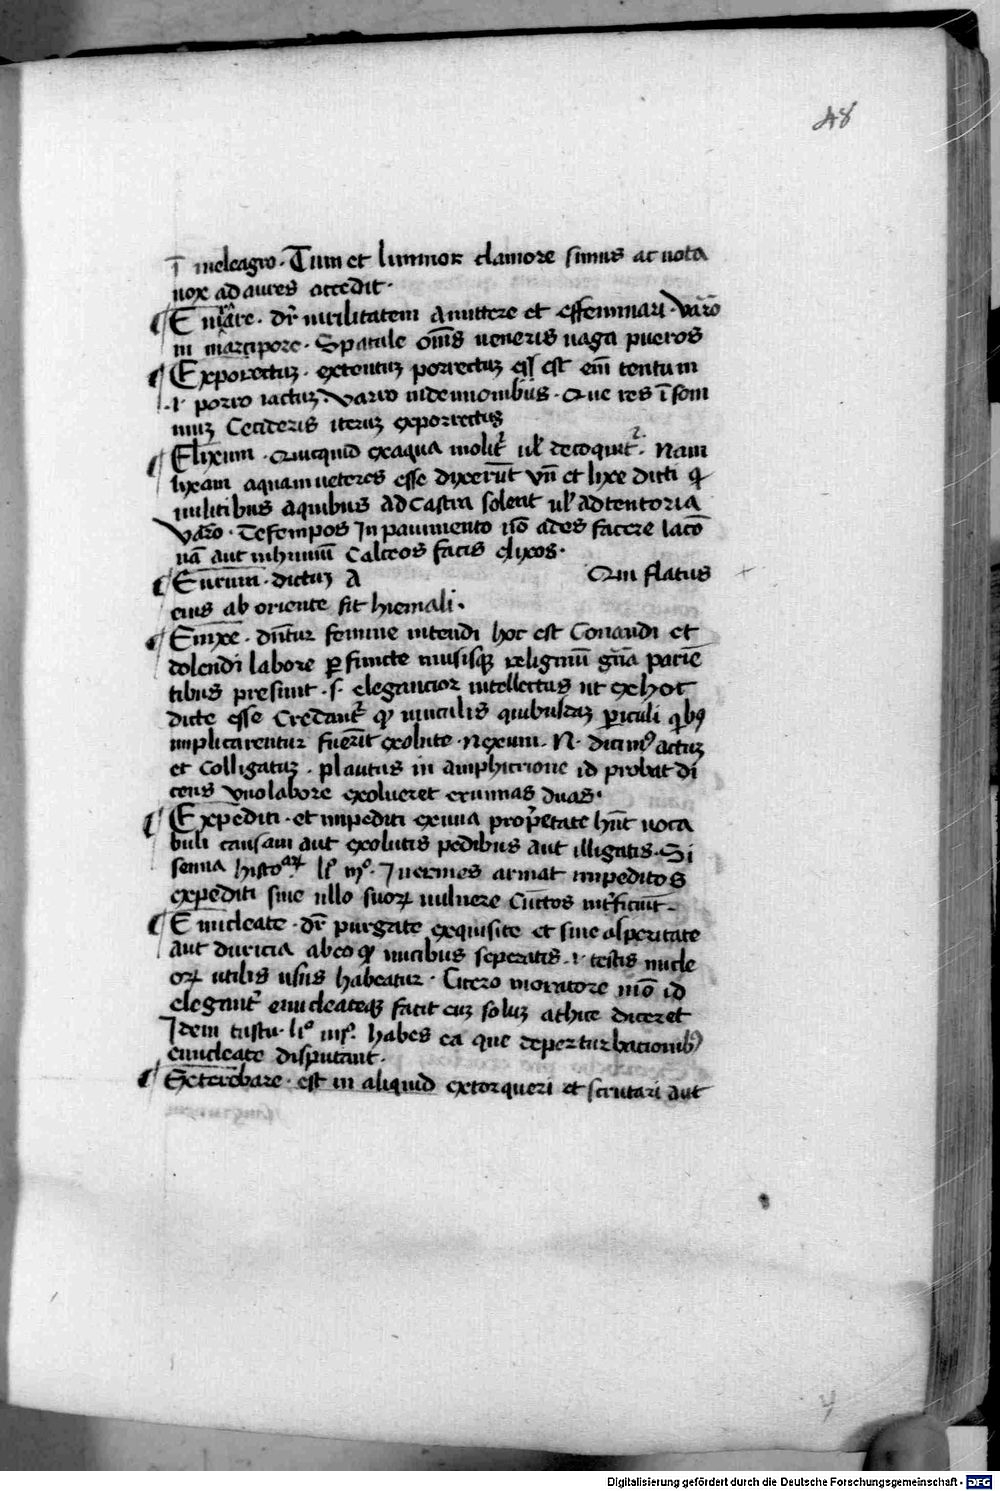 48
ī meleagro · Tum et lummox clamore simus ac nota
uox ad aures accedit ·
¶ E mare · dr̄ uirilitatem Amittere et effeminari · Varo
in marcipore · Spatule om̄s ueneris uaga pueros
¶ Exporrectuꝫ · extentuꝫ porrectuꝫ est em̄ tentum
·i· porro iactuꝫ Varro meleagris · Que res ī som
nuꝫ Cecideris iteruꝫ exporrectus
¶ Elixum · Quicquid ex aqua molit̄ ul' decoquit̄ · Nam
lixam aquam ueteres esse dixerūt vn̄ et lixe dicti ꝙ
militibus aquibus ad castra solent ul' ad tentoria
Varo · Te fempos In pauimento nō ades facere laco
nā aut inhumū Calceos facis elixos ·
¶ Eurum · dictuꝫ A Qui flatus
eius ab oriente fit hiemali ·
¶ Enixe · dn̄tur femine intendi hoc est Conandi et
dolendi labore ꝑfuncte
tibus presunt · s · elegancior intellectus ut ex hoc
dicte esse Credant̄ ꝙ uinculis quibusdaꝫ periculi qbꝰ
implicarentur fuerīt exolute · Nexum · N · dicimꝰ actuꝫ
et Colligatuꝫ · plautus in amphitrione id probat di
cens Vno labore exolueret erumnas duas ·
¶ Expediti · et impediti ex una propetate hn̄t uoca
buli causam aut exolutis pedibus aut illigatis · Si
senna histoꝛꝫ liº mº · Inermes armat impeditos
expediti sine ullo suoꝝ uulnere Cunctos interficiūt
¶ Enucleate · dr̄ purgate exquisite et sine asperitate
aut duricia ab eo ꝙ nucibus seperatis · i · testis nucle
oꝝ utilis usus habeatur · Cicero in oratore nō id
elegant̄ enucleateqꝫ facit
Idem tuscu · liº iiijº · habes ea que de perturbacionibꝰ
enucleate disputant ·
¶ Exterebare · est in aliquid extorqueri et scrutari aut
Digitalisierung gefördert durch die Deutsche Forschungsgemeinschaft · DFG